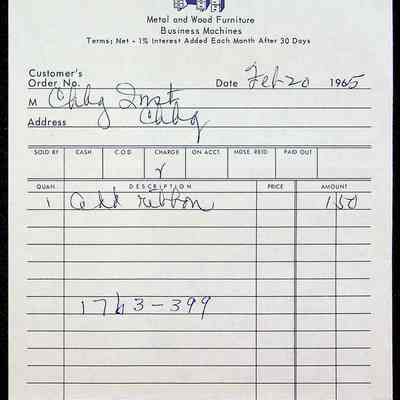 Metal and Wood Furniture
Business Machines
Terms; Net - 1% Interest Added Each Month After 30 Days
Customer's
Order No. Date Feb 20 1965
M Chbg Inst
Address Chbg
SOLD BY CASH C.O.D. CHARGE ON ACCT. MDSE. RETD. PAID OUT
QUAN. DESCRIPTION PRICE AMOUNT
1 Add ribbon 1 50
1763-399